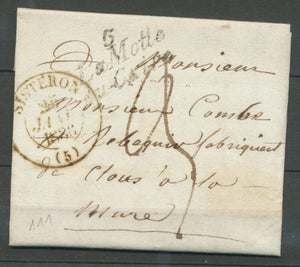 5
La Motte
du Caire
SISTERON
JANV.
(5)
A Monsieur
Monsieur Combe
fabriquant
de Clous à la
Mure
111